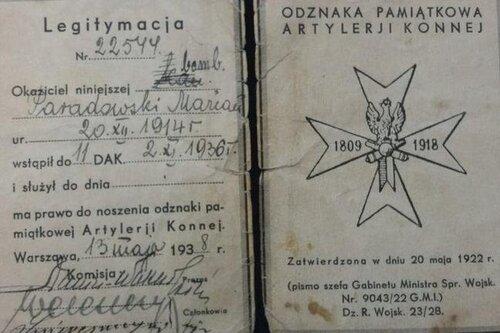 Legitymacja
Nr. 22544
bomb.
Okaziciel niniejszej
Paradowski Marian
ur. 20.XII.1914r
wstąpił do 11 DAK. 2.XI.1936r.
i służył do dnia
ma prawo do noszenia odznaki pa-
miątkowej Artylerii Konnej.
Warszawa, 13 maja 1938 r.
Komisja
Prezes
Członkowie
ODZNAKA PAMIĄTKOWA
ARTYLERJI KONNEJ
1809 1918
Zatwierdzona w dniu 20 maja 1922 r.
(pismo szefa Gabinetu Ministra Spr. Wojsk.
Nr. 9043/22 G.M.I.)
Dz. R. Wojsk. 23/28.